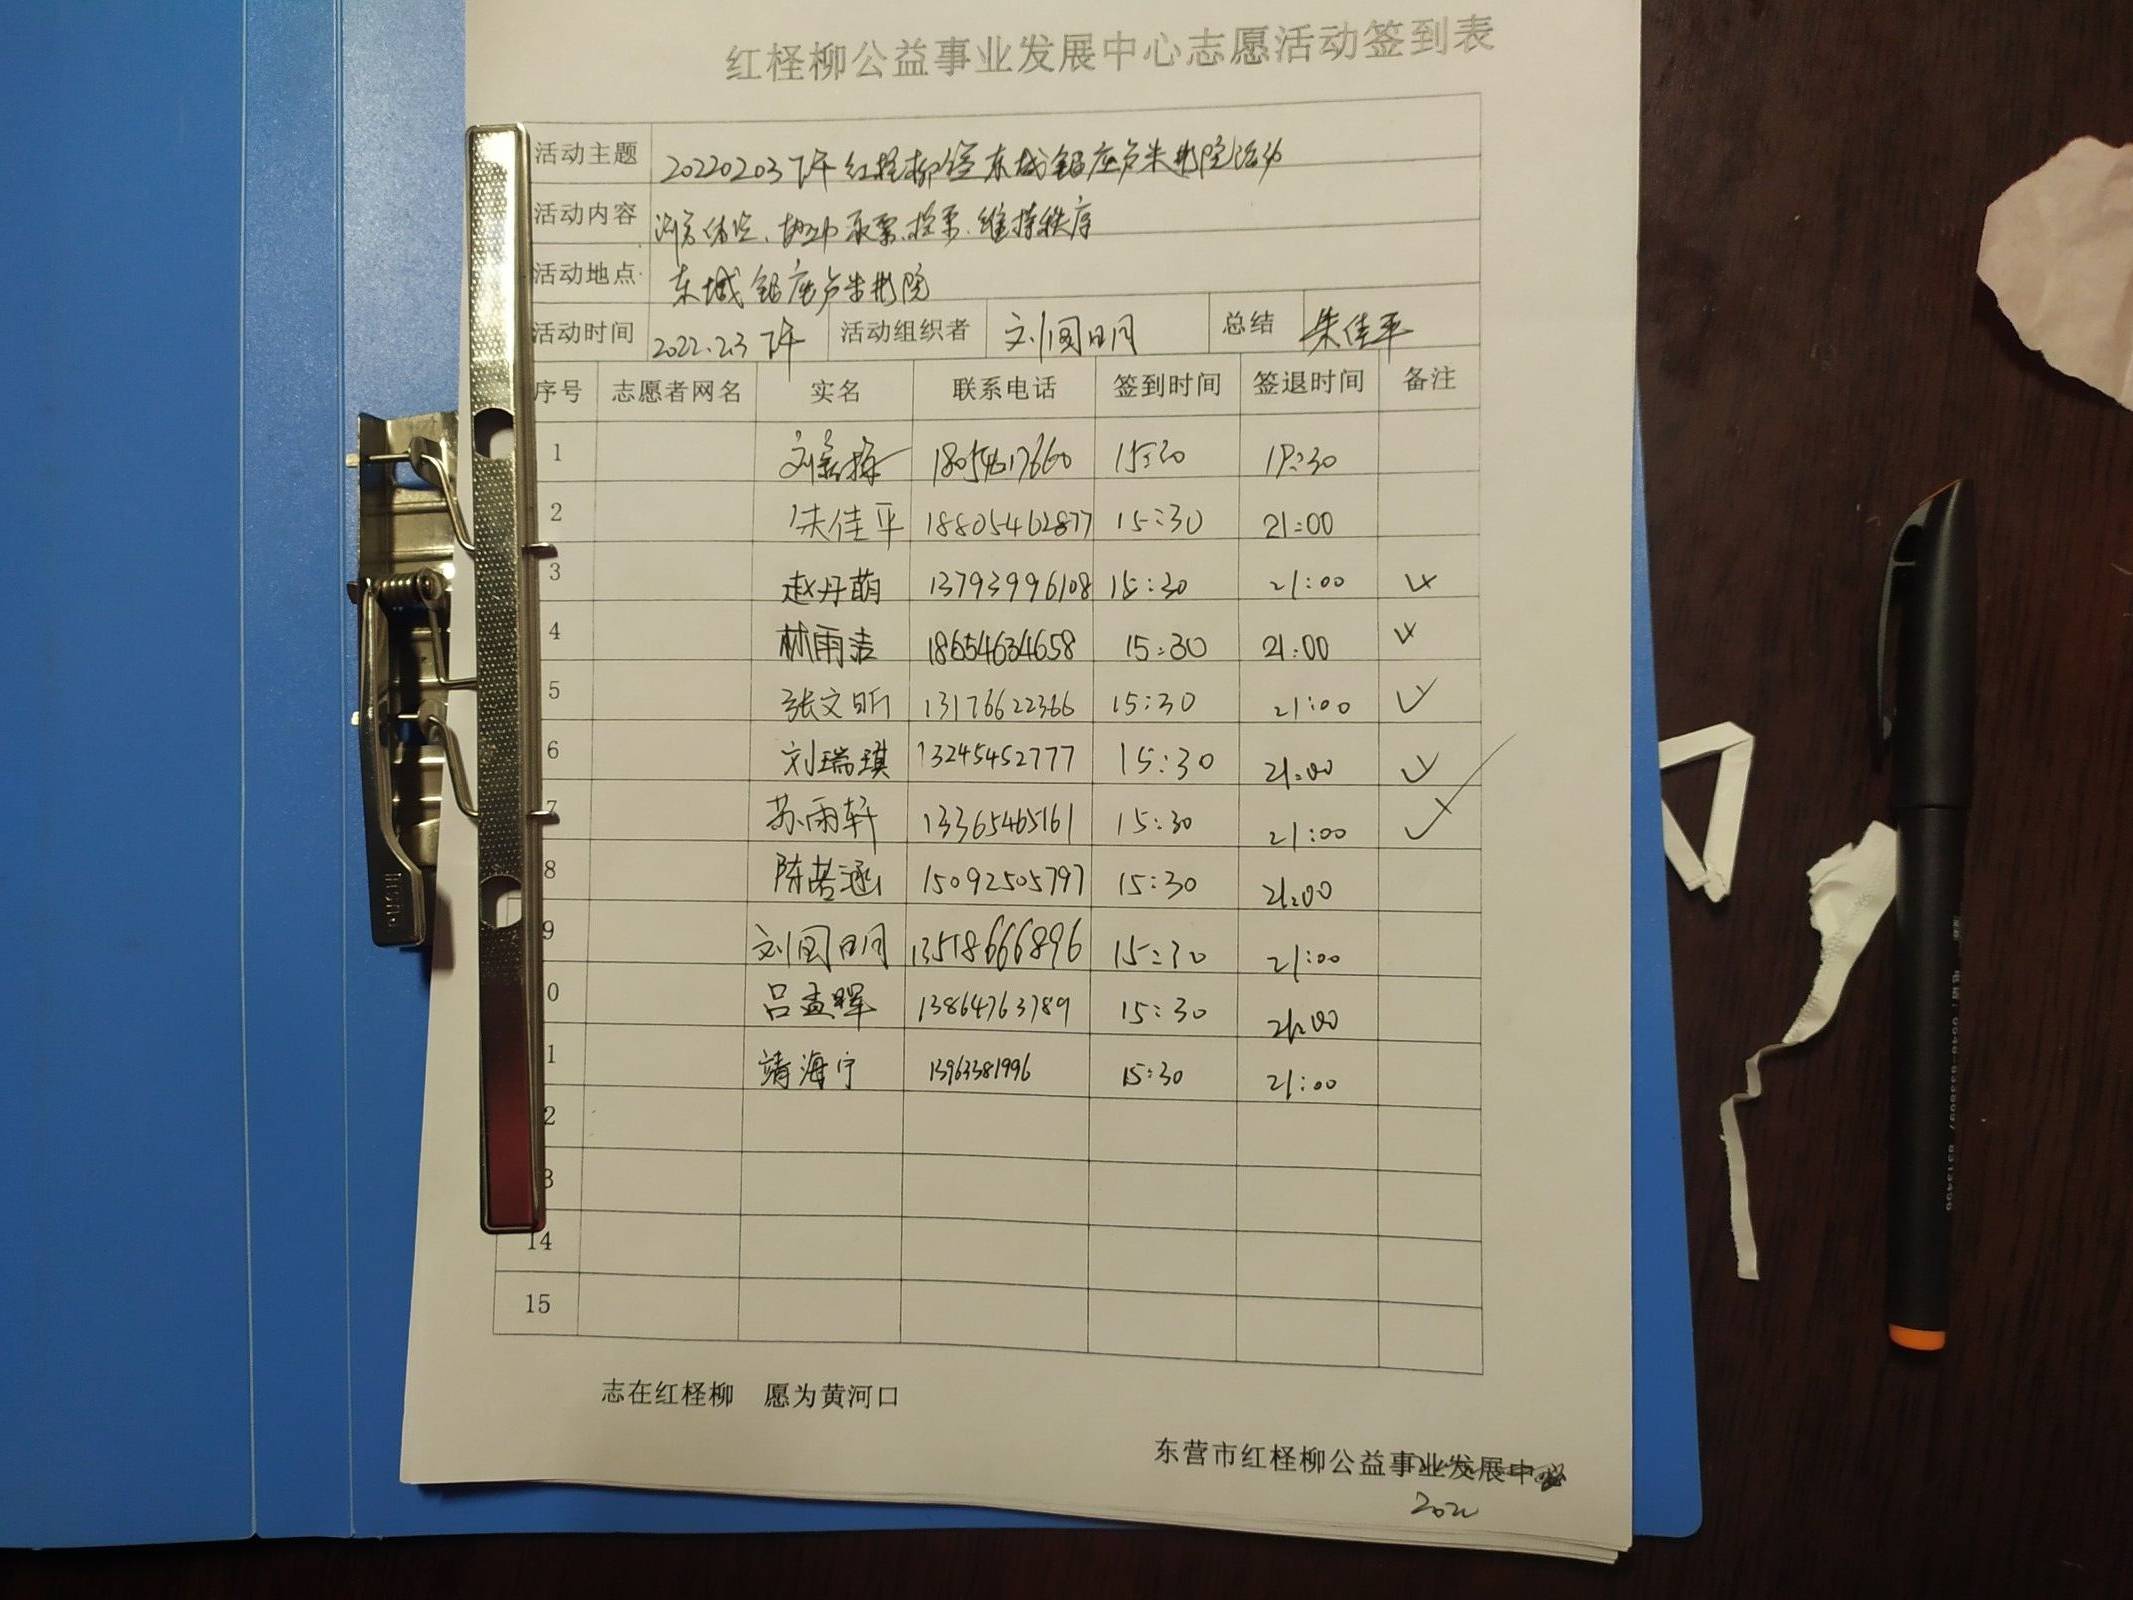 红柽柳公益事业发展中心志愿活动签到表
活动主题 20220203下午红柽柳 东城银座卢米埃影院活动
活动内容 协助取票、捡票、维持秩序
活动地点 东城银座卢米埃影院
活动时间 2022.2.3 下午 活动组织者 刘国明 总结 朱佳平
序号 志愿者网名 实名 联系电话 签到时间 签退时间 备注
1 刘 15:30 19:30
2 朱佳平 18805462877 15:30 21:00
3 赵丹萌 13793996108 15:30 21:00 ✓
4 林雨洁 18654634658 15:30 21:00 ✓
5 张文昕 13176622366 15:30 21:00 ✓
6 刘瑞琪 13245452777 15:30 21:00 ✓
7 苏雨轩 13365465161 15:30 21:00 ✓
8 陈若涵 15092505797 15:30 21:00
9 刘国明 13518666896 15:30 21:00
0 吕孟晖 13864763789 15:30 21:00
1 靖海宁 13963381996 15:30 21:00
2
3
14
15
志在红柽柳 愿为黄河口
东营市红柽柳公益事业发展中心
202